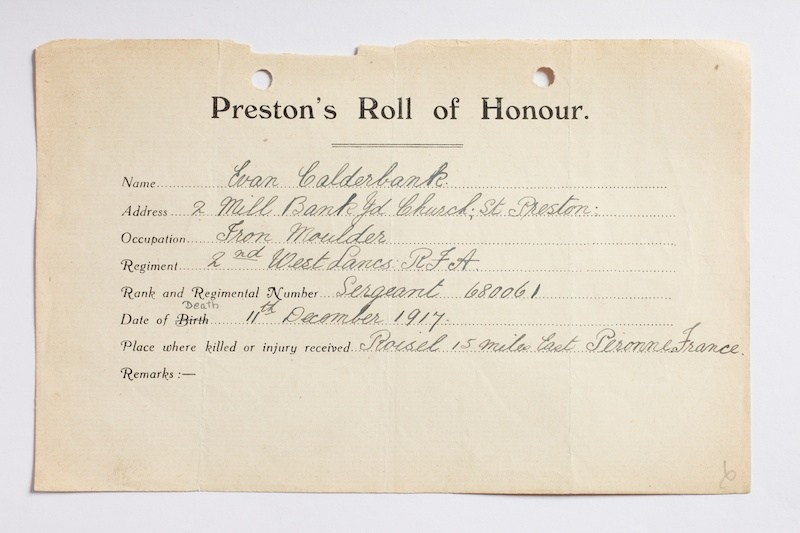 Preston's Roll of Honour.
Name Evan Calderbank.
Address 2 Mill Bank Yd Church; St Preston:
Occupation Iron Moulder
Regiment 2nd West Lancs R.F.A.
Rank and Regimental Number Sergeant 680061
Death
Date of Birth 11th December 1917.
Place where killed or injury received Roisel 15 miles East Peronne France.
Remarks :—
6